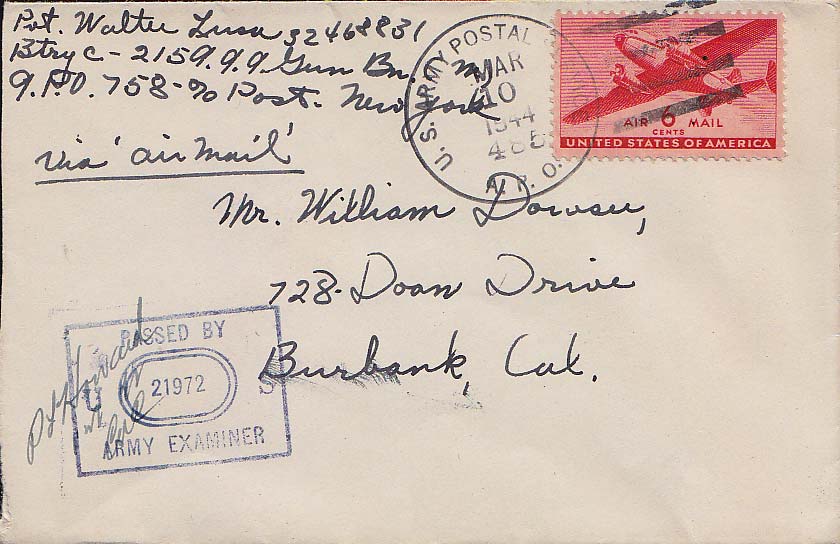 Pvt. Walter Lusa 32468831
Btry C - 215 9.9.9 Gun Bn.
A.P.O. 758 - % Post. New York
Via 'air Mail'
U.S. ARMY POSTAL
MAR
10
1944
485
A.P.O.
AIR 6 MAIL
CENTS
UNITED STATES OF AMERICA
Mr. William
728 - Doan Drive
Burbank, Cal.
PASSED BY
U 21972 S
ARMY EXAMINER
Howard